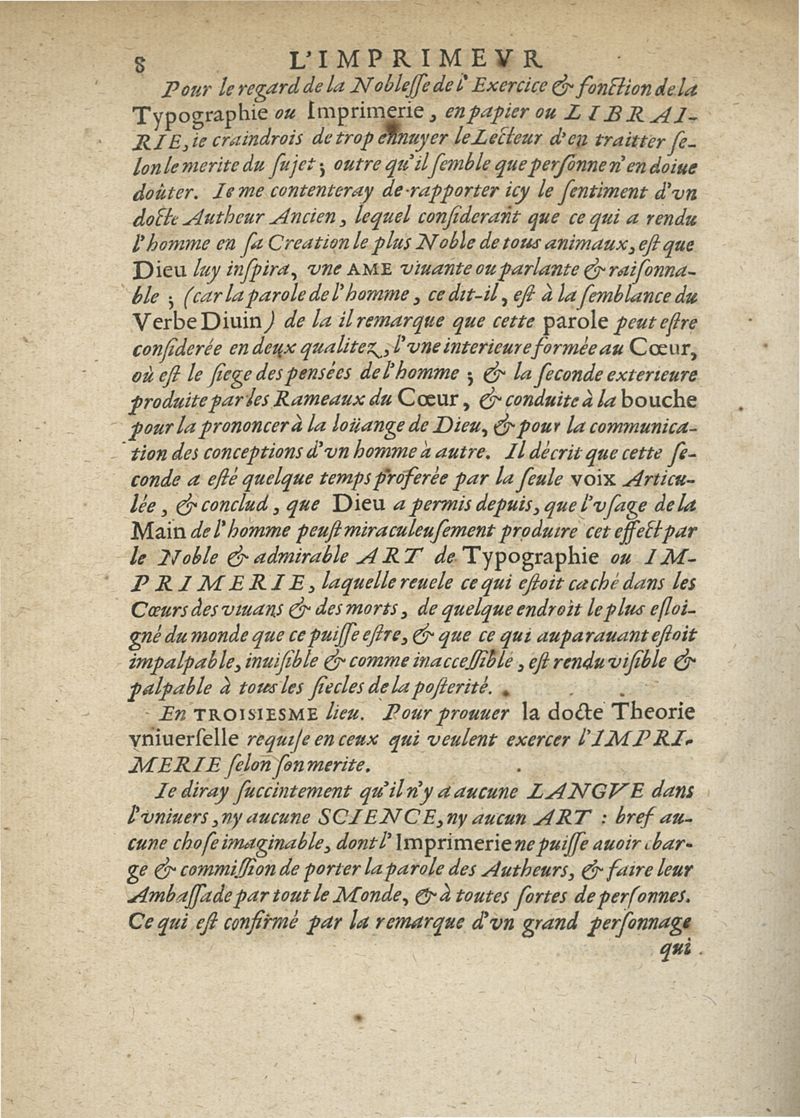 8 L'IMPRIMEVR
Pour le regard de la Nobleſſe de l' Exercice & fonction de la
Typographie ou Imprimerie, en papier ou LIBRAI-
RIE, ie craindrois de trop ennuyer le Lecteur d'en traitter ſe-
lon le merite du ſujet; outre qu'il ſemble que perſonne n'en doiue
doûter. Ie me contenteray de rapporter icy le ſentiment d'vn
docte Autheur Ancien, lequel conſiderant que ce qui a rendu
l'homme en ſa Creation le plus Noble de tous animaux, eſt que
Dieu luy inſpira, vne AME viuante ou parlante & raiſonna-
ble; (car la parole de l'homme, ce dit-il, eſt à la ſemblance du
Verbe Diuin) de la il remarque que cette parole peut eſtre
conſiderée en deux qualitez, l'vne interieure formée au Cœur,
où eſt le ſiege des pensées de l'homme; & la ſeconde exterieure
produite par les Rameaux du Cœur, & conduite à la bouche
pour la prononcer à la loüange de Dieu, & pour la communica-
tion des conceptions d'vn homme à autre. Il décrit que cette ſe-
conde a eſté quelque temps proferée par la ſeule voix Articu-
lée, & conclud, que Dieu a permis depuis, que l'vſage de la
Main de l'homme peuſt miraculeuſement produire cet effect par
le Noble & admirable ART de Typographie ou IM-
PRIMERIE, laquelle reuele ce qui eſtoit caché dans les
Cœurs des viuans & des morts, de quelque endroit le plus eſloi-
gné du monde que ce puiſſe eſtre, & que ce qui auparauant eſtoit
impalpable, inuiſible & comme inacceſſible, eſt rendu viſible &
palpable à tous les ſiecles de la poſterité.
En TROISIESME lieu. Pour prouuer la docte Theorie
vniuerſelle requiſe en ceux qui veulent exercer l'IMPRI-
MERIE ſelon ſon merite.
Ie diray ſuccintement qu'il n'y a aucune LANGVE dans
l'vniuers, ny aucune SCIENCE, ny aucun ART : bref au-
cune choſe imaginable, dont l'Imprimerie ne puiſſe auoir char-
ge & commiſſion de porter la parole des Autheurs, & faire leur
Ambaſſade par tout le Monde, & à toutes ſortes de perſonnes.
Ce qui eſt confirmé par la remarque d'vn grand perſonnage
qui